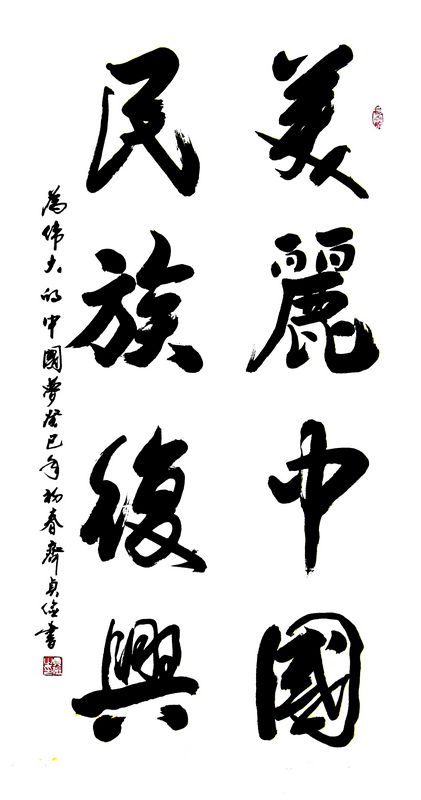 美麗中國
民族復興
為偉大的中國夢癸巳年初春齊貞臣書